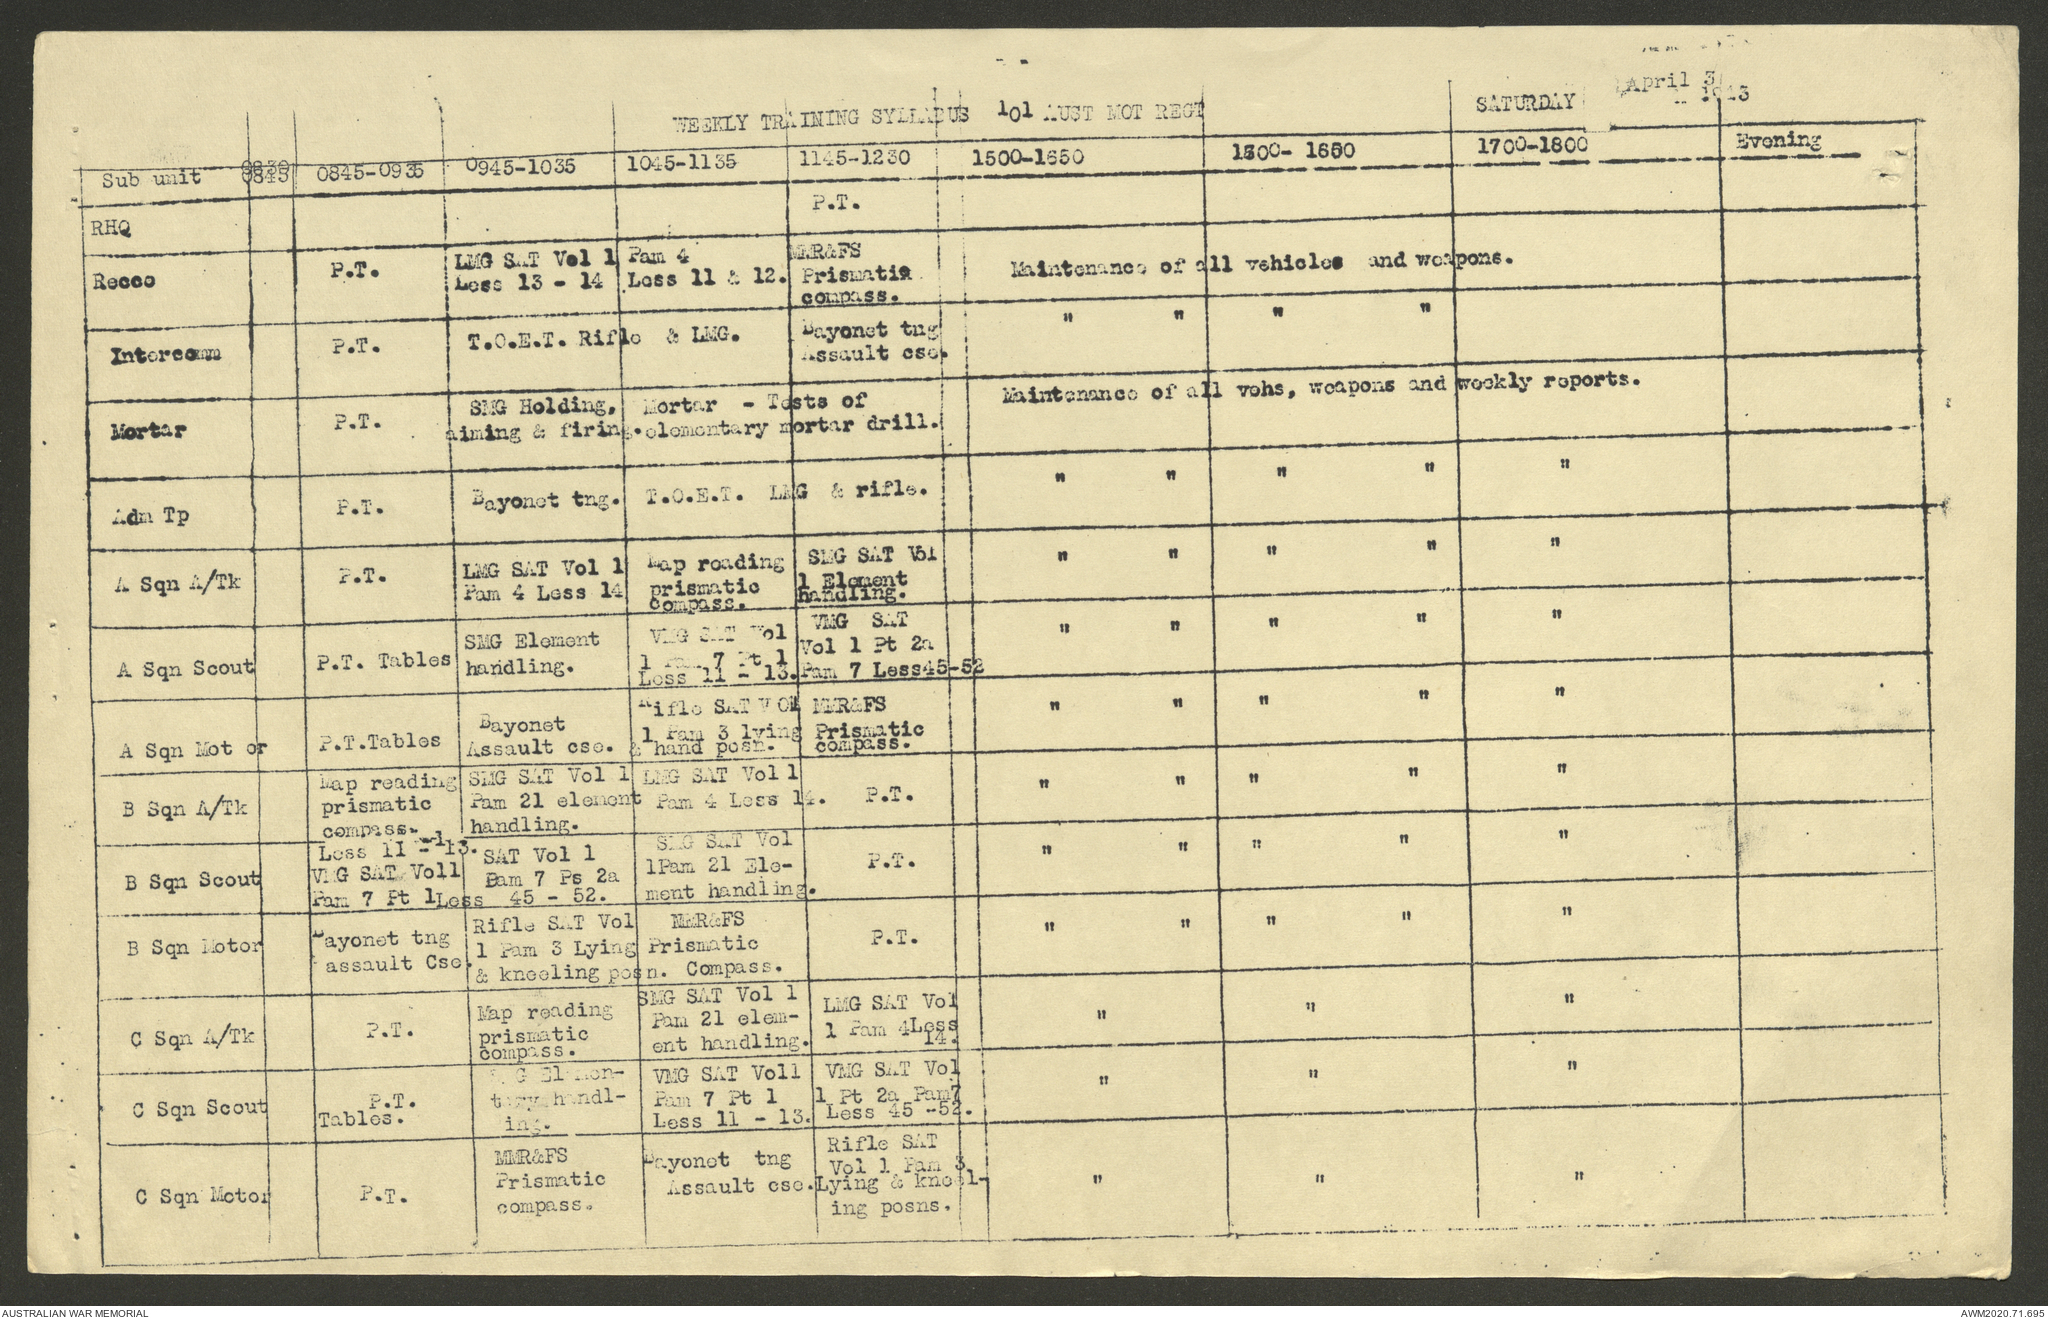 April 3
1943
WEEKLY TRAINING SYLLABUS 101 AUST MOT REGT SATURDAY
Sub unit 0830 0845 0845-0935 0945-1035 1045-1135 1145-1230 1500-1650 1500- 1650 1700-1800 Evening
RHQ P.T.
Recce P.T. LMG SAT Vol 1 Pam 4 MMR&FS
Less 13 - 14 Less 11 & 12. Prismatic
compass.
Maintenance of all vehicles and weapons.
Intercomm P.T. T.O.E.T. Rifle & LMG. Bayonet tng
Assault cse.
" " " "
Mortar P.T. SMG Holding, Mortar - Tests of
aiming & firing. elementary mortar drill.
Maintenance of all vehs, weapons and weekly reports.
Adm Tp P.T. Bayonet tng. T.O.E.T. LMG & rifle. " " " " "
A Sqn A/Tk P.T. LMG SAT Vol 1
Pam 4 Less 14
Map reading
prismatic
compass.
SMG SAT Vol
1 Element
handling.
" " " " "
A Sqn Scout P.T. Tables SMG Element
handling.
VMG SAT Vol
1 Pam 7 Pt 1
Less 11 - 13.
VMG SAT
Vol 1 Pt 2a
Pam 7 Less45-52
" " " " "
A Sqn Mot or P.T.Tables Bayonet
Assault cse.
Rifle SAT V Ol
1 Pam 3 lying
& hand posn.
MMR&FS
Prismatic
compass.
" " " " "
B Sqn A/Tk Map reading
prismatic
compass.
SMG SAT Vol 1
Pam 21 element
handling.
LMG SAT Vol 1
Pam 4 Less 14.
P.T.
" " " " "
B Sqn Scout Less 11 - 13.
VMG SAT Vol1
Pam 7 Pt 1
SAT Vol 1
Pam 7 Ps 2a
Less 45 - 52.
SMG SAT Vol
1Pam 21 Ele-
ment handling.
P.T.
" " " " "
B Sqn Motor Bayonet tng
assault Cse.
Rifle SAT Vol
1 Pam 3 Lying
& kneeling posn.
MMR&FS
Prismatic
Compass.
P.T.
" " " " "
C Sqn A/Tk P.T. Map reading
prismatic
compass.
SMG SAT Vol 1
Pam 21 elem-
ent handling.
LMG SAT Vol
1 Pam 4Less
14.
" " "
C Sqn Scout P.T.
Tables.
handl-
ing.
VMG SAT Vol1
Pam 7 Pt 1
Less 11 - 13.
VMG SAT Vol
1 Pt 2a Pam7
Less 45 -52.
" " "
C Sqn Motor P.T. MMR&FS
Prismatic
compass.
Bayonet tng
Assault cse.
Rifle SAT
Vol 1 Pam 3
Lying & kneel-
ing posns.
" " "
AUSTRALIAN WAR MEMORIAL AWM2020.71.695